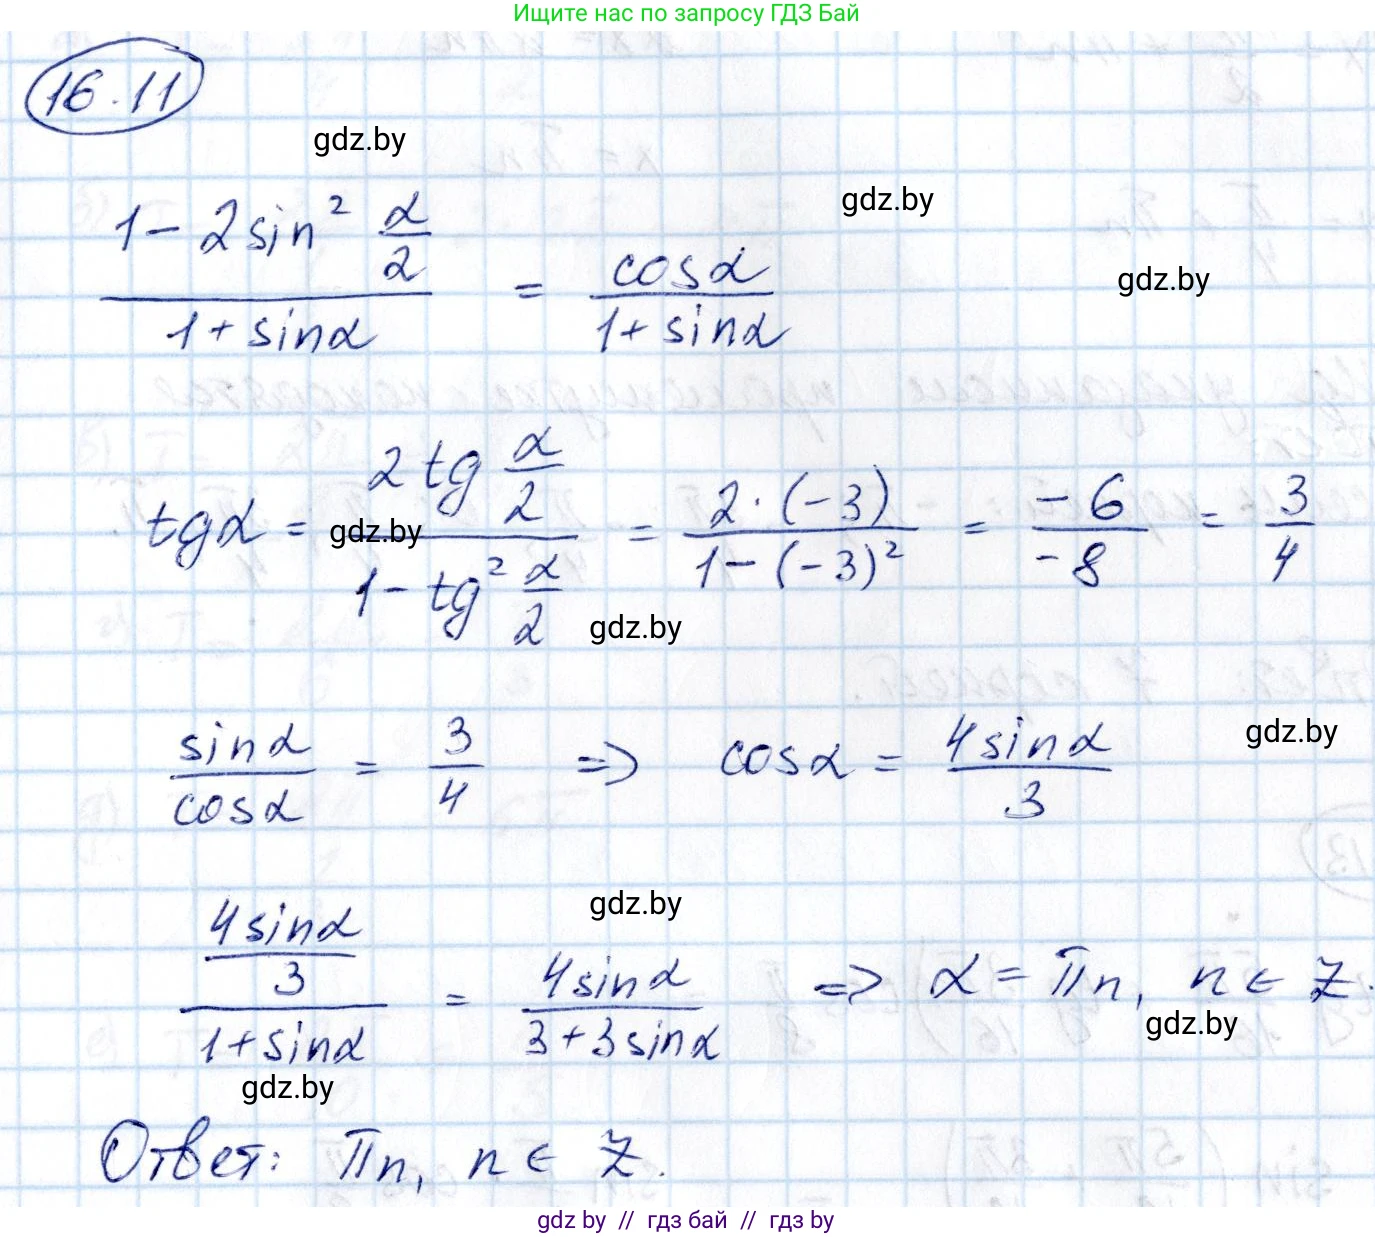 Ищите нас по запросу ГДЗ Бай
16.11
gdz.by
gdz.by
gdz.by
(1 - 2sin² α/2)/(1 + sinα) = cosα/(1 + sinα)
tgα = (2tg α/2)/(1 - tg² α/2) = (2·(-3))/(1-(-3)²) = -6/-8 = 3/4
gdz.by
gdz.by
sinα/cosα = 3/4 => cosα = 4sinα/3
gdz.by
gdz.by
(4sinα/3)/(1+sinα) = 4sinα/(3+3sinα) => α = πn, n ∈ Z.
gdz.by
gdz.by
Ответ: πn, n ∈ Z.
gdz by // гдз бай // гдз by